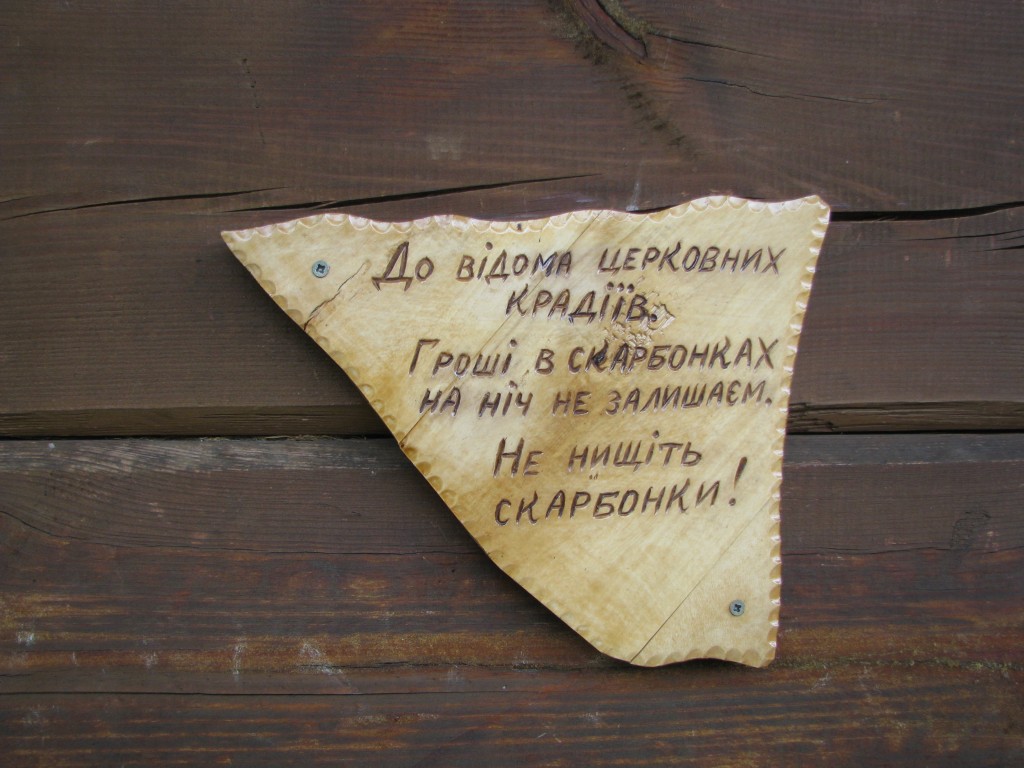 До відома церковних
крадіїв.
Гроші в скарбонках
на ніч не залишаєм.
Не нищіть
скарбонки!